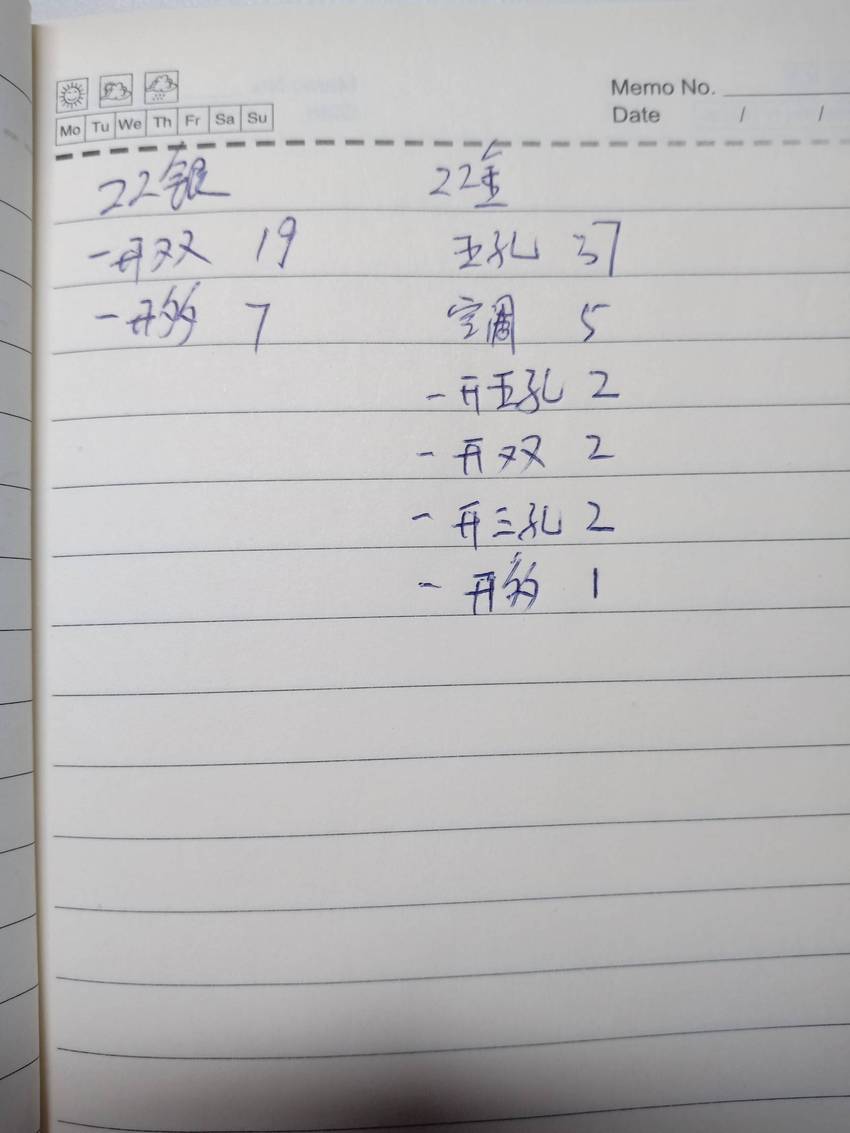 Memo No.
Mo Tu We Th Fr Sa Su
Date / /
22银
一开双 19
一开多 7
22金
五孔 37
空调 5
一开五孔 2
一开双 2
一开三孔 2
一开多 1